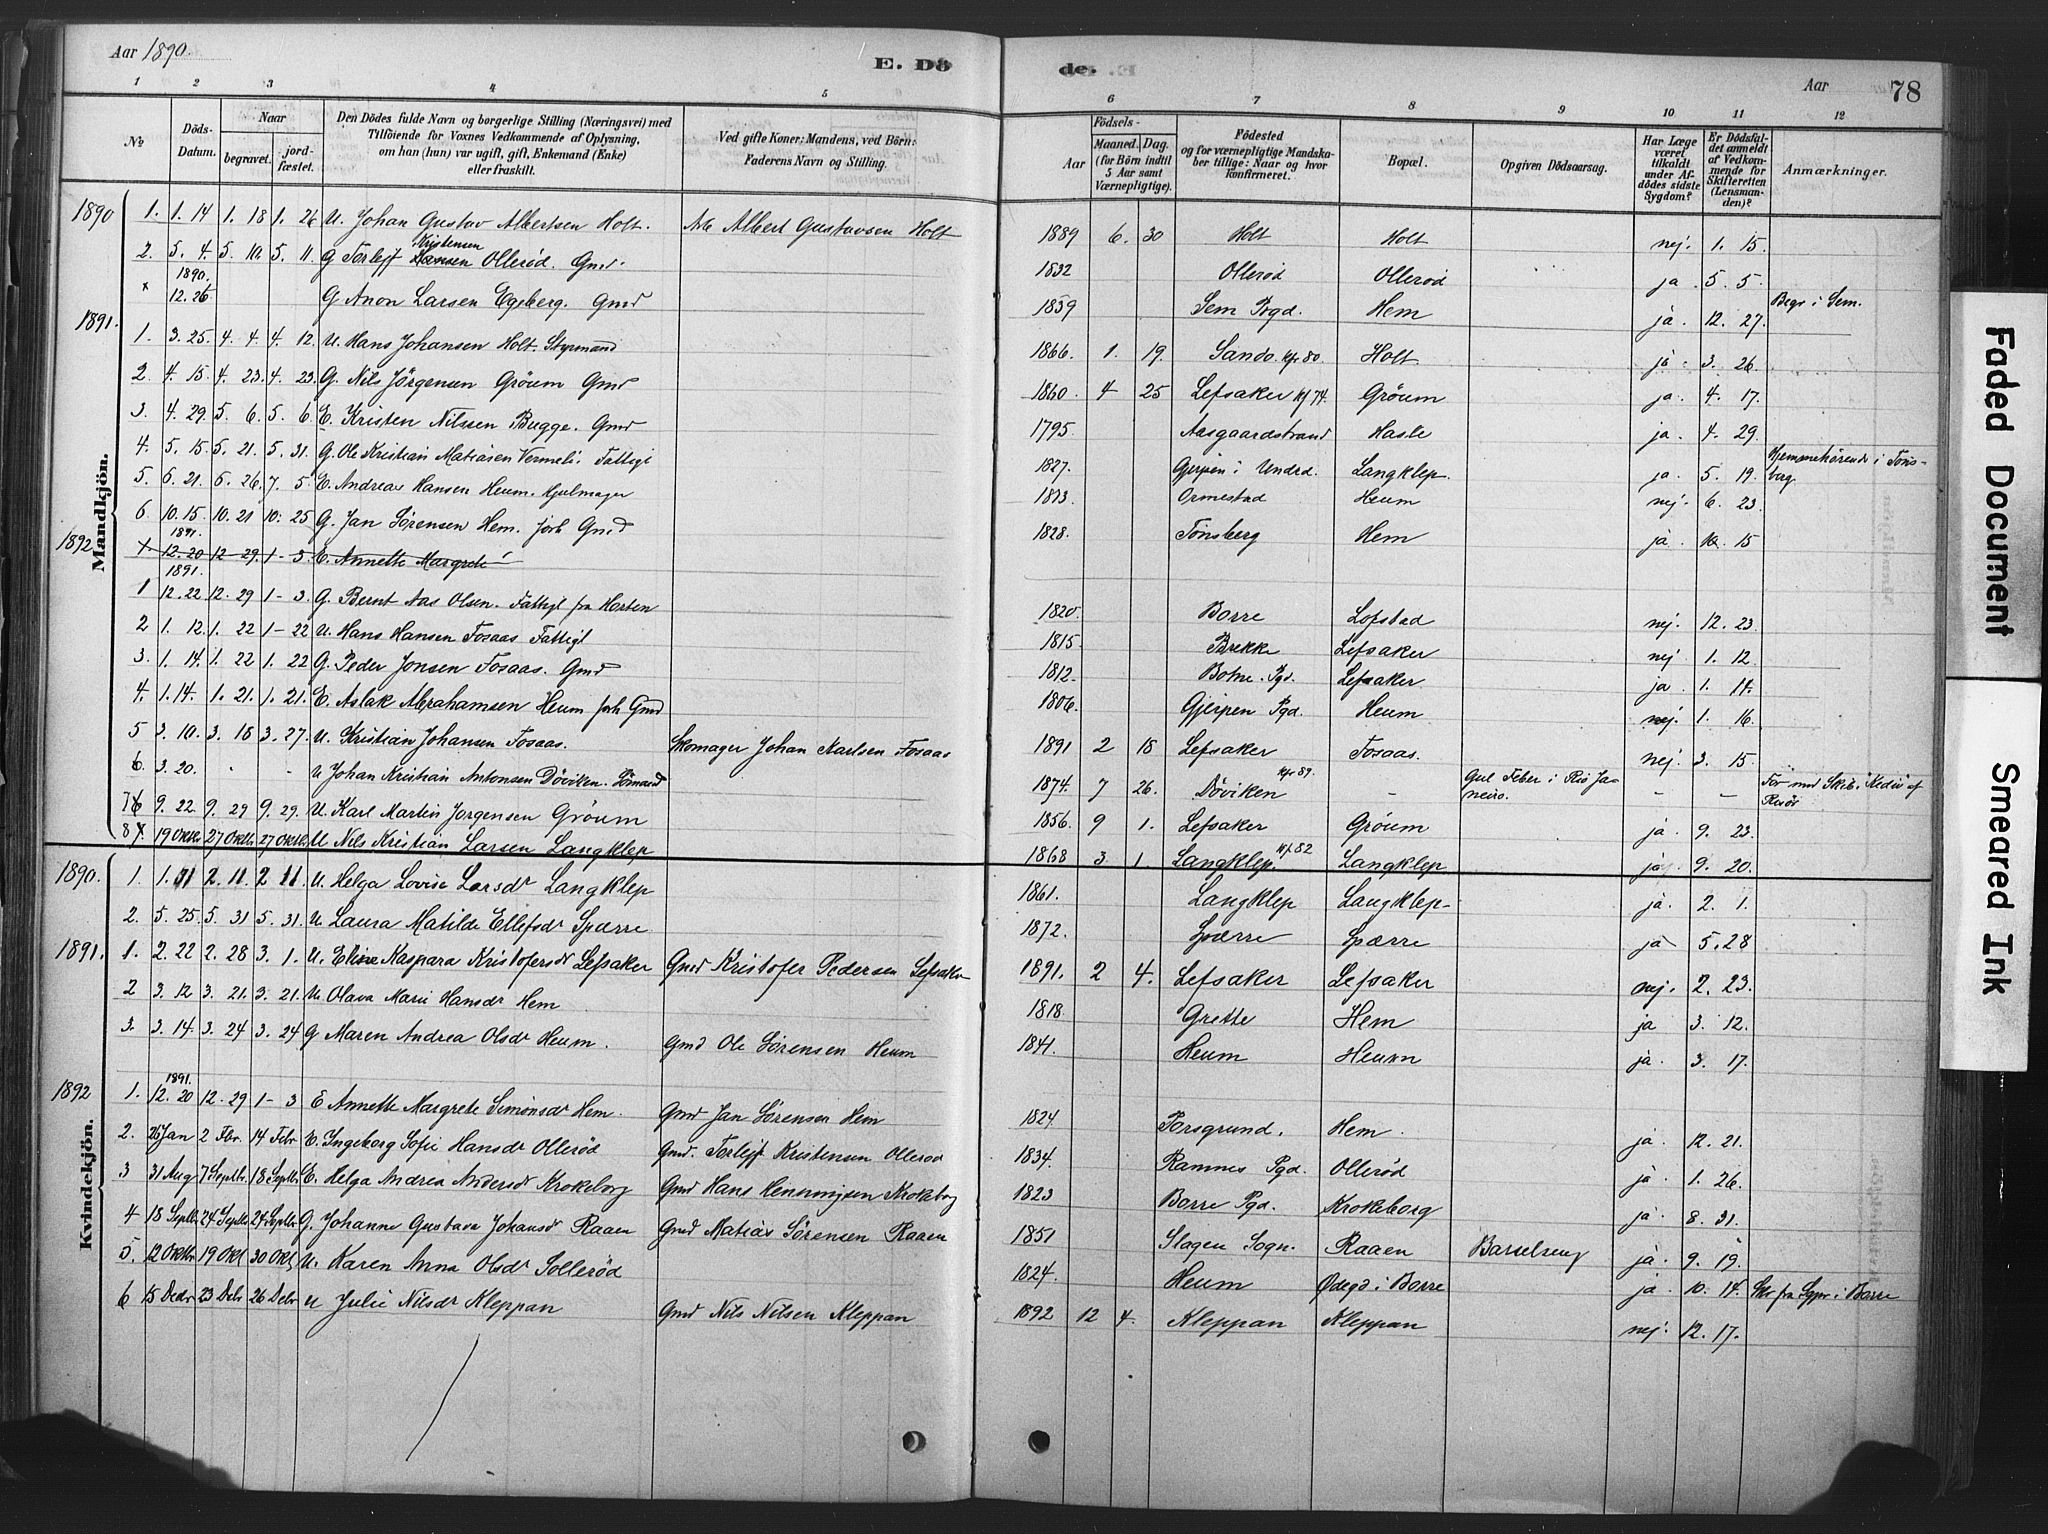 Aar 1890. E. Dö
de. Aar 78
1 2 3 4 5 6 7 8 9 10 11 12
№ Döds-Datum. Naar begravet. jord-fæstet. Den Dödes fulde Navn og borgerlige Stilling (Næringsvei) med Tilföiende for Voxnes Vedkommende af Oplysning, om han (hun) var ugift, gift, Enkemand (Enke) eller fraskilt. Ved gifte Koner: Mandens, ved Börn: Faderens Navn og Stilling. Födsels- Aar Maaned. Dag. (for Börn indtil 5 Aar samt Værnepligtige). Födested og for værnepligtige Mandska-ber tillige: Naar og hvor konfirmeret. Bopæl. Opgiven Dödsaarsag. Har Læge været tilkaldt under Af-dödes sidste Sygdom? Er Dödsfal-det anmeldt af Vedkom-mende for Skifteretten (Lensman-den)? Anmærkninger.
Mandkjön.
1890 1. 1. 14 1. 18 1. 26 U. Johan Gustav Albertsen Holt. Arb Albert Gustavsen Holt 1889 6. 30 Holt Holt nej. 1. 15.
2. 5. 4. 5. 10. 5. 11. G Torleif Kristensen Ollerød. Gmd. 1832 Ollerød Ollerød ja. 5. 5.
× 1890. 12. 26 G Anon Larsen Egeberg. Gmd 1859 Sem Prgd. Hem ja. 12. 27. Begr i Sem.
1891. 1. 3. 25. 4. 4. 4. 12. U. Hans Johansen Holt. Styrmand 1866. 1. 19. Sando Kf. 80. Holt ja. 3. 26
2 4. 15. 4. 23. 4. 23. G. Nils Jörgensen Gröum Gmd 1860. 4 25 Lefsaker Kf 74. Gröum ja. 4. 17.
3. 4. 29. 5. 6. 5. 6. E. Kristen Nilssen Bugge. Gmd 1795. Aasgaardstrand Hasle ja. 4. 29.
4. 5. 15. 5. 21. 5. 31. G. Ole Kristian Matiasen Vermeli. Fattigl 1827. Gjerpen i Undrd. Langklep. ja. 5. 19. Hjemmehörende i Töns-berg
5. 6. 21. 6. 26. 7. 5. E. Andreas Hansen Heum. Hjulmager 1813. Ormestad Heum nej. 6. 23.
6. 10. 15. 10. 21 10. 25 G. Jan Sörensen Hem. forh Gmd 1828. Tönsberg Hem ja. 10. 15
1892 × 1891. 12. 20 12 - 29. 1 - 3 E. Annette Margrete
1 1891. 12. 22 12. 29 1 - 3. G. Bernt Aas Olsen. Fattigl fra Horten 1820. Borre Lofstad nej. 12. 23.
2 1. 12. 1. 22 1 - 22 U. Hans Hansen Fosaas Fattigl 1815. Brekke Lefsaker nej 1. 12.
3. 1. 14. 1. 22 1. 22 G. Peder Jonsen Fosaas. Gmd 1812. Botne. Pgd. Lefsaker ja. 1. 11.
4. 1. 14. 1. 21. 1. 21. E. Aslak Abrahamsen Heum forh Gmd 1806. Gjerpen Pgd. Heum nej. 1. 16.
5 3. 10. 3. 18 3. 27. U. Kristian Johansen Fosaas. Skomager Johan Karlsen Fosaas 1891 2 18 Lefsaker Fosaas. nej. 3. 15.
6. 3. 20. - - U Johan Kristian Antonsen Döviken. Sömand 1874. 7 26. Döviken Kf. 89. - Gul Feber i Rio Ja-neiro. - - For med Skib "Kedis" af Risör
7 9. 22. 9. 29 9. 29. U. Karl Martin Jorgensen Gröum 1856. 9 1. Lefsaker Gröum ja. 9. 23.
8 19 Oktbr 27 Oktbr 27 Oktbr U Nils Kristian Larsen Langklep 1868 3. 1. Langklep. Kf. 82 Langklep ja. 9. 20.
Kvindekjön.
1890. 1. 1. 2. 11. 2 11 U. Helga Lovise Larsdr Langklep 1861. Langklep Langklep- ja. 2. 1.
2. 5. 25. 5. 31 5. 31. U Laura Matilde Ellefsdr Spærre 1872. Spærre Spærre ja 5. 28
1891. 1. 2. 22 2. 28 3. 1. U. Eline Kaspara Kristofersdr Lefsaker Gmd Kristofer Pedersen Lefsaker 1891. 2 4. Lefsaker Lefsaker nej. 2. 23.
2 3. 12 3. 21. 3. 21. U Olava Marie Hansdr Hem 1818. Grette Hem ja 3. 12.
3. 3. 14. 3. 24 3. 24 G Maren Andrea Olsdr Heum. Gmd Ole Sörensen Heum 1841. Heum Heum ja. 3. 17.
1892 1. 1891. 12. 20 12. 29 1 - 3 E Annette Margrete Simonsdr Hem. Gmd Jan Sörensen Hem 1824. Porsgrund. Hem. ja. 12. 21.
2. 25 Jan 2 Fbr. 14 Febr E. Ingeborg Sofie Hansdr Olleröd Gmd. Torleif Kristensen Olleröd 1834. Ramnes Pgd. Olleröd ja. 1. 26.
3 31 Aug 7 Septbr 18 Septbr E. Helga Andrea Andersdr Krokeborg Gmd Hans Henningsen Krokeborg 1823 Borre Pgd. Krokeborg ja. 8. 31.
4 18 Septbr 24 Septbr 24 Septbr G. Johanne Gustava Johansdr Raaen Gmd Matias Sörensen Raaen 1851 Slagen Sogn. Raaen Barselseng ja. 9. 19.
5. 12 Oktbr 19 Okt 30 Okt U. Karen Anna Olsdr Solleröd 1824. Heum Ödegd i Borre ja. 10. 14. Skr fra Spr i Borre
6 15 Decbr 23 Debr 26 Debr U Julie Nilsdr Kleppan Gmd Nils Nilsen Kleppan 1892 12 4. Kleppan Kleppan nej. 12. 17.
Faded Document
Smeared Ink